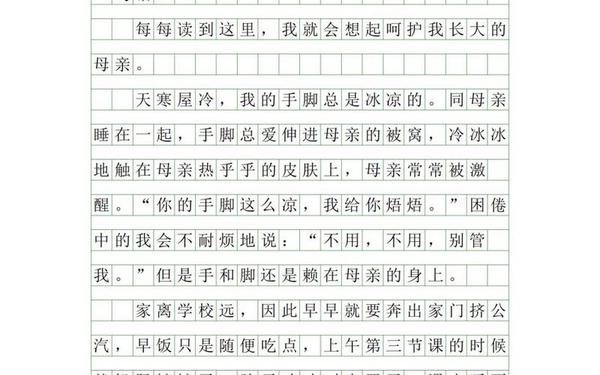 每每读到这里，我就会想起呵护我长大的
母亲。
天寒屋冷，我的手脚总是冰凉的。同母亲
睡在一起，手脚总爱伸进母亲的被窝，冷冰冰
地触在母亲热乎乎的皮肤上，母亲常常被激
醒。“你的手脚这么凉，我给你焐焐。”困倦
中的我会不耐烦地说：“不用，不用，别管
我。”但是手和脚还是赖在母亲的身上。
家离学校远，因此早早就要奔出家门挤公
汽，早饭只是随便吃点，上午第三节课的时候